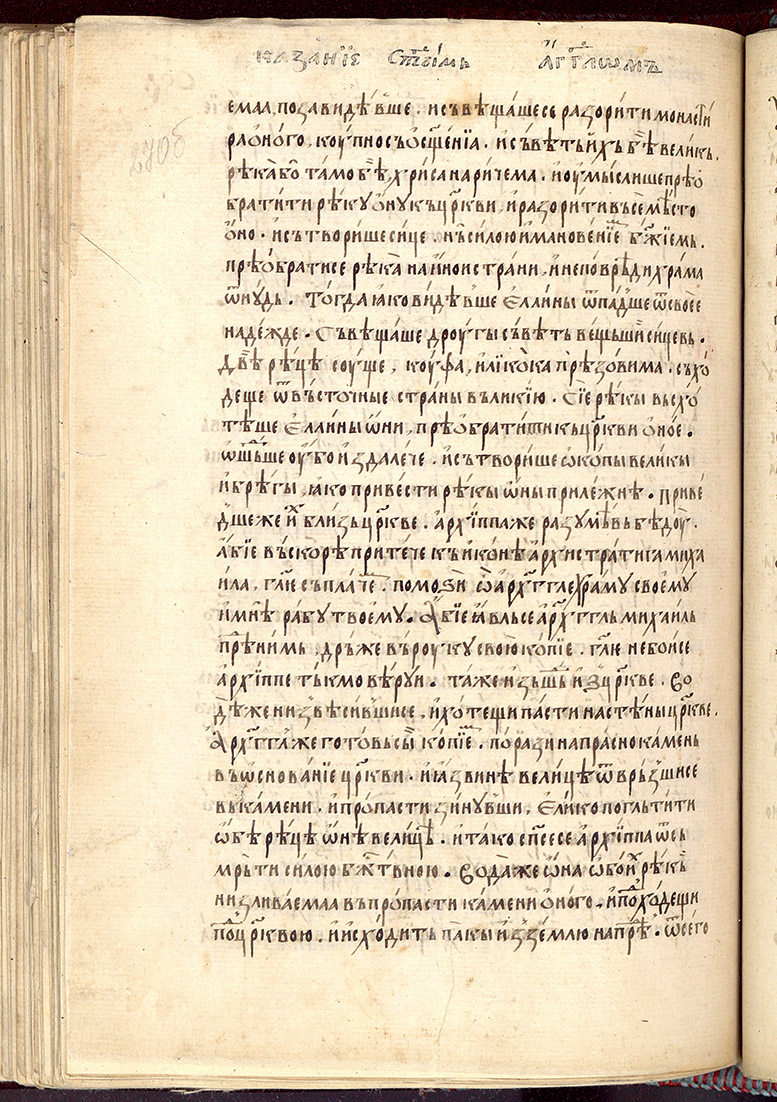 казанїе ст҃ымь а҆гг҃лѡмъ
270б
емаа, позавидѣвше . и съвѣщаше се разорити монасти
ра ѻного, коупно съ ѻсщ҃енїа . и съвѣть и҆хъ бѣ великь .
рѣка бо тамо бѣ, хриса наричема . и оумыслише прѣѻ
братити рѣку ѻну къ цр҃кви, и разорити въсе мѣсто
ѻно . и сътворише сице нъ силою и мановенїемь бж҃їемь .
прѣѻбрати се рѣка на иное страни, и не поврѣди храма
ѿнудь . Тогда ꙗко видѣвше Еллины ѿпадше ѿ своее
надежде . Съвещаше дроугы съвѣть вещьши сицевь .
Двѣ рѣцѣ соуще, коуфа, и ликока прѣзовима . съхо
деще ѿ въсточные страны въ ликїю . Сїе рѣкы въсхо
тѣше Еллины ѡни, прѣѻбратити къ цр҃кви ѻное .
ѡшьвше оубо издалече . и сътворише ѡкопы великы
и брѣгы, ꙗко привести рѣкы ѡны прилежнѣ . приве
дше же их близь цр҃кве . архїппа же разумѣвь бѣдоу .
абїе въскорѣ притече къ иконѣ архистратига миха
ила, гл҃е съ плаче . помози ѡ арх҃гг҃ле храму своему
и мнѣ рабу твоему . Абїе ꙗвль се арх҃гг҃ль михаиль
прѣ нимь, дръже въ роуку свою копїе . гл҃е не бои се
архїппе тькмо вѣруи . таже изьшьд из цр҃кве . Во
дѣ же низвѣсившисе, и хотещи пасти на стѣны цр҃кве .
Арх҃гг҃л же готовь сы копїемь . порази напрасно камень
въ ѡснованїе цр҃кви . и ꙗзвинѣ велицѣ ѿврьзшисе
въ камени . и пропасти зинувши, Елико погльтити
ѡбѣ рѣцѣ ѡнѣ велицѣ . и тако сп҃се се архїппа ѿ сь
мрьти силою бж҃твною . Вода же ѡна ѡбоих рѣкь
низливаемаа въ пропасти камени ѻного . и походещи
под цр҃квою . и исходить пакы из землю напрѣд . ѿ сего